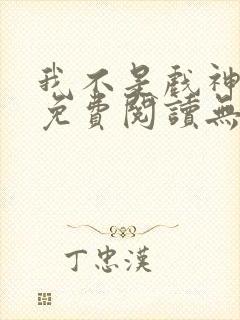 我不是戲神
免費閱讀無
丁忠漢